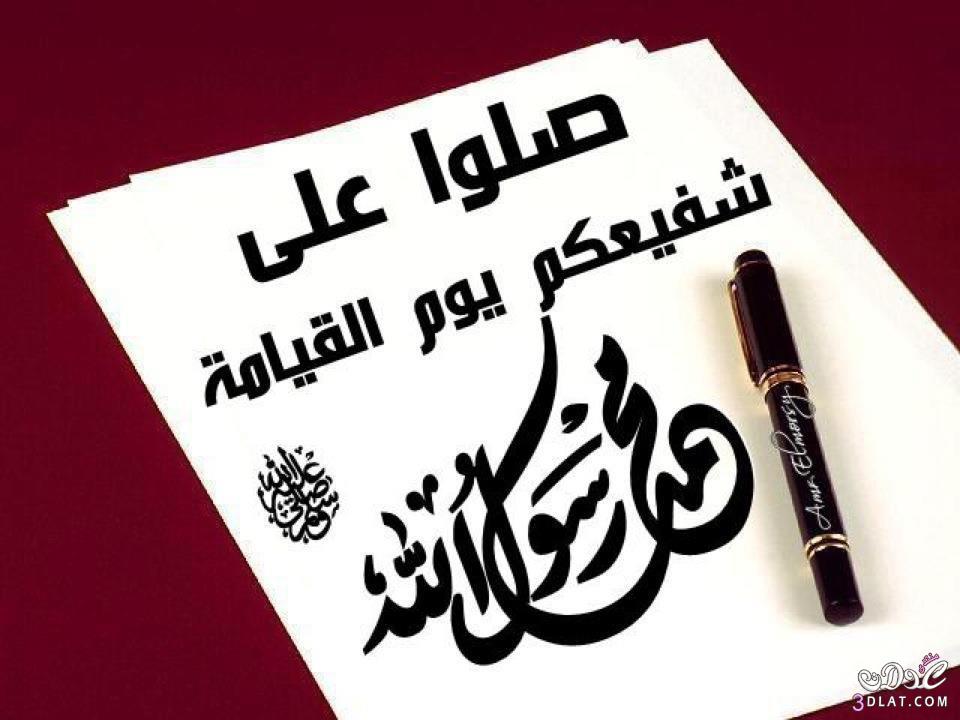 صلوا على
شفيعكم يوم القيامة
محمد رسول الله
صلى الله عليه وسلم
Amr Elmorsy
منتدى
عدلات
3DLAT.COM